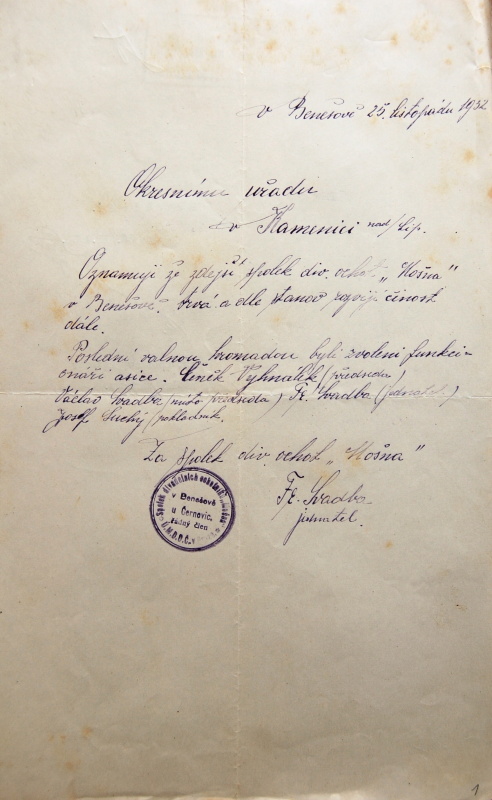 v Benešově 25. listopadu 1932
Okresnímu uřadu
v Kamenici nad/Lip.
Oznamuji že zdejší spolek div. ochot. „Mošna"
v Benešově. trvá a dle stanov rozvijí činost
dále.
Poslední valnou hromadou byli zvoleni funkci-
onáři asice. Čeněk Vyhnálek (předseda)
Václav Svadba (místo předseda) Fr. Svadba (jednatel.)
Josef Suchý (pokladník.
Za spolek div. ochot „Mošna"
Fr. Svadba
jednatel.
Spolek divadelních ochotníků
v Benešově
u Černovic.
řádný člen
Ú.M.D.O.Č.
1